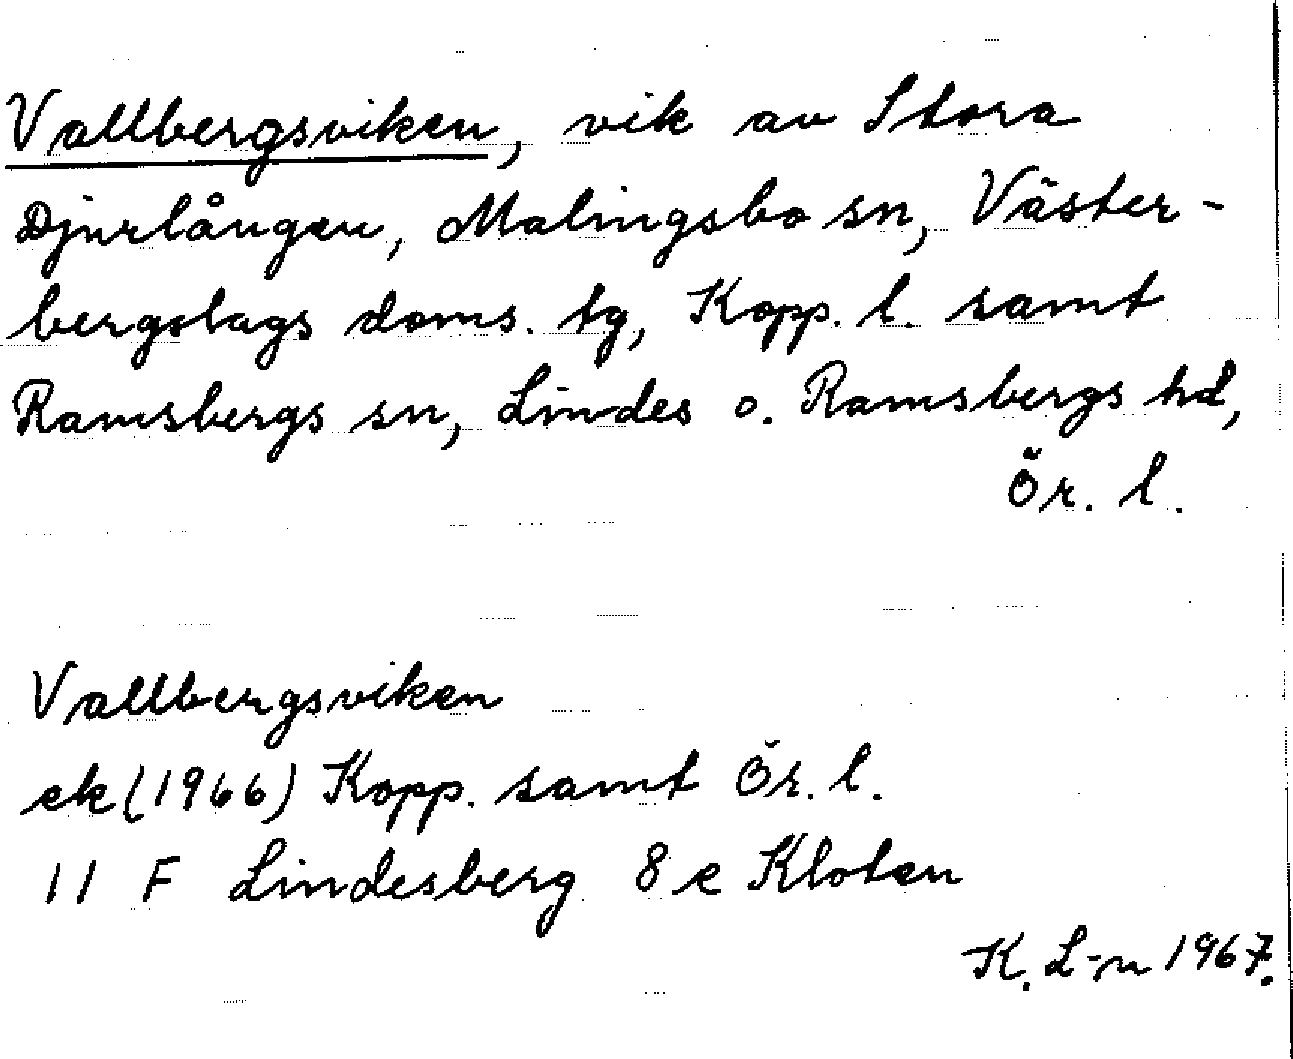 Vallbergsviken, vik av Stora
Djurlången, Malingsbo sn, Väster-
bergslags doms. tg, Kopp. l. samt
Ramsbergs sn, Lindes o. Ramsbergs hd,
Ör. l.
Vallbergsviken
ek (1966) Kopp. samt Ör. l.
11 F Lindesberg 8 e Kloten
K. L-n 1967.